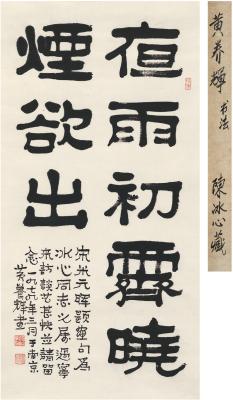 黄养輝 书法 陳冰心藏
夜雨初霽曉
煙欲出
宋米元暉題畫句為
冰心同志之屬過寧
來訪談藝甚快並請留
念一九七九年三月于南京
黄養輝書